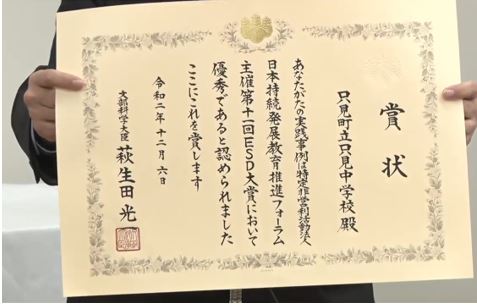 賞状
只見町立只見中学校殿
あなたがたの実践事例は特定非営利活動法人
日本持続発展教育推進フォーラム
主催第十一回ESD大賞において
優秀であると認められました
ここにこれを賞します
令和二年十二月六日
文部科学大臣 萩生田光一